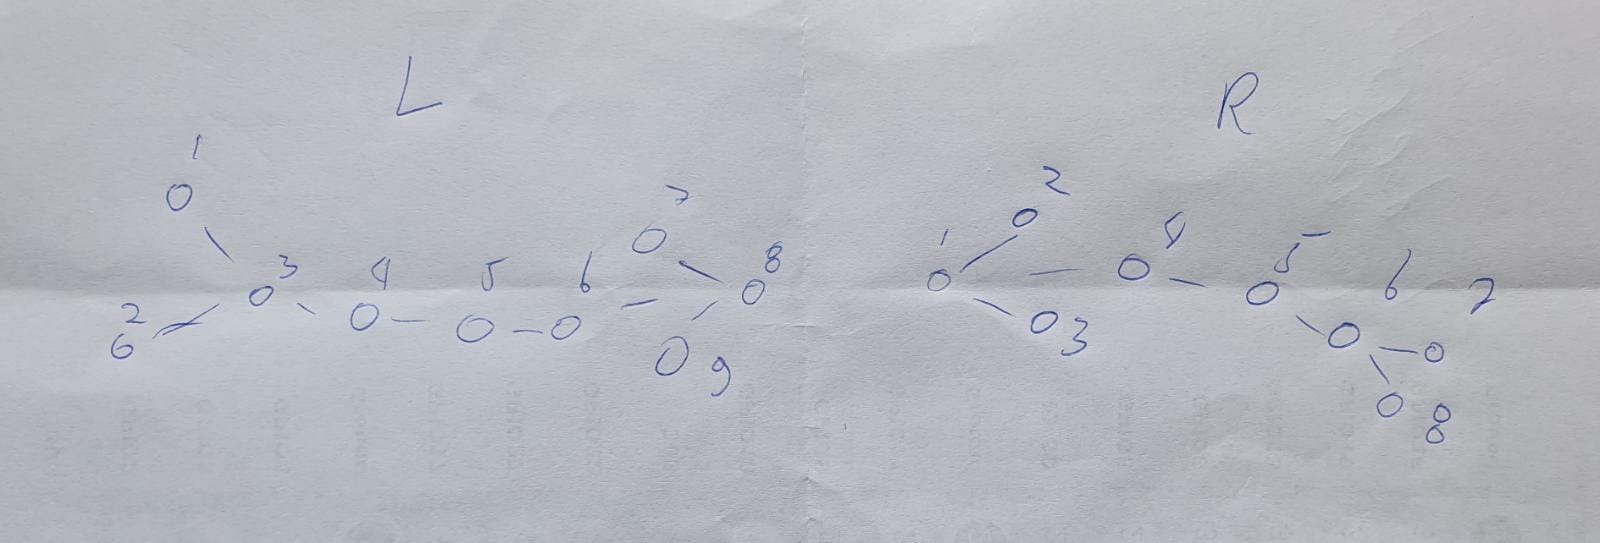 L R
1 2 3 4 5 6 7 8 9
1 2 3 4 5 6 7 8